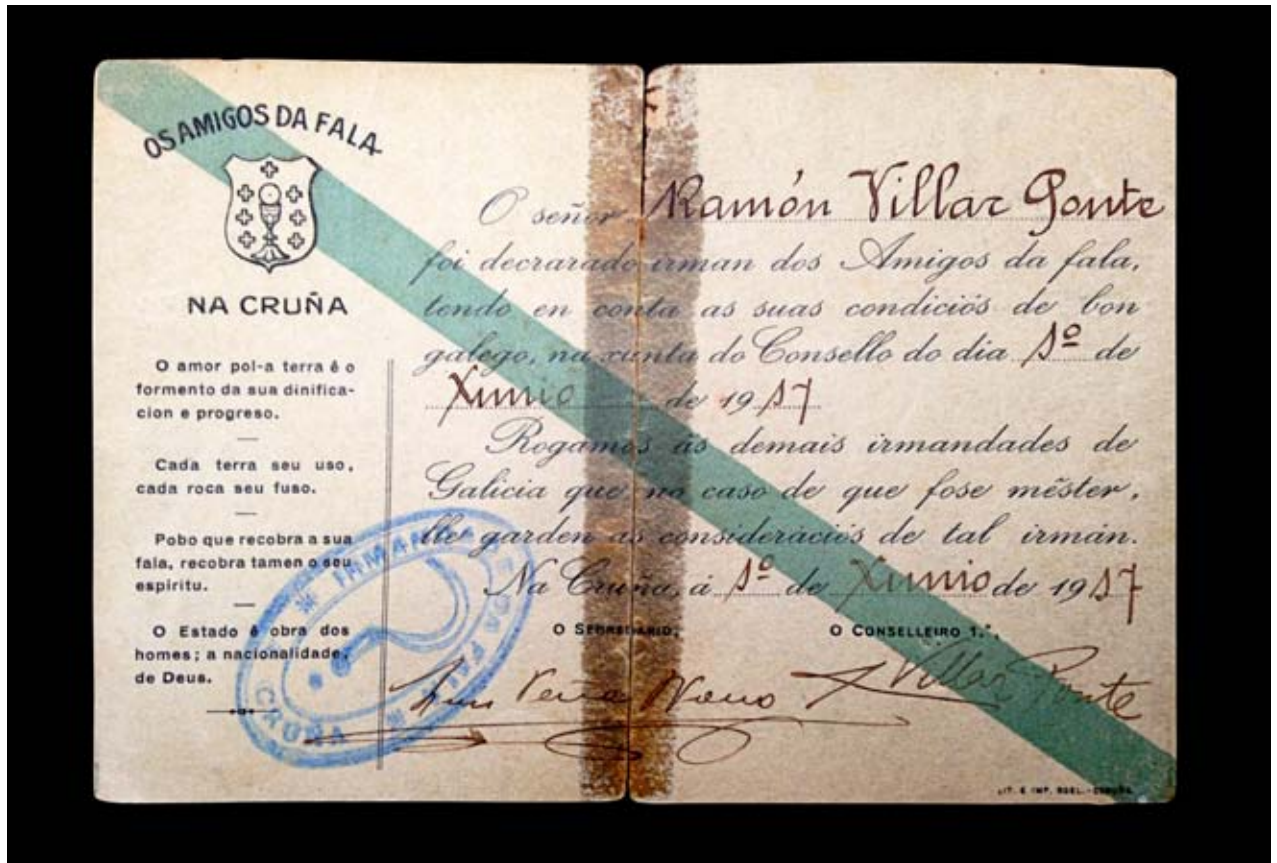 OS AMIGOS DA FALA
NA CRUÑA
O amor pol-a terra é o
formento da sua dinifica-
cion e progreso.
Cada terra seu uso,
cada roca seu fuso.
Pobo que recobra a sua
fala, recobra tamen o seu
espiritu.
O Estado é obra dos
homes; a nacionalidade,
de Deus.
O señor Ramón Villar Ponte
foi decrarado irman dos Amigos da fala,
tendo en conta as suas condiciós de bon
galego, na xunta do Consello do dia 1º de
Xunio de 1917
Rogamos ás demais irmandades de
Galicia que no caso de que fose méster,
lle garden as consideraciós de tal irmán.
Na Cruña, á 1º de Xunio de 1917
O SECRETARIO,
O CONSELLEIRO 1.º,
Peña Novo
Villar Ponte
IRMANDADE DA FALA
CRUÑA
LIT. E IMP. ROEL.-CORUÑA